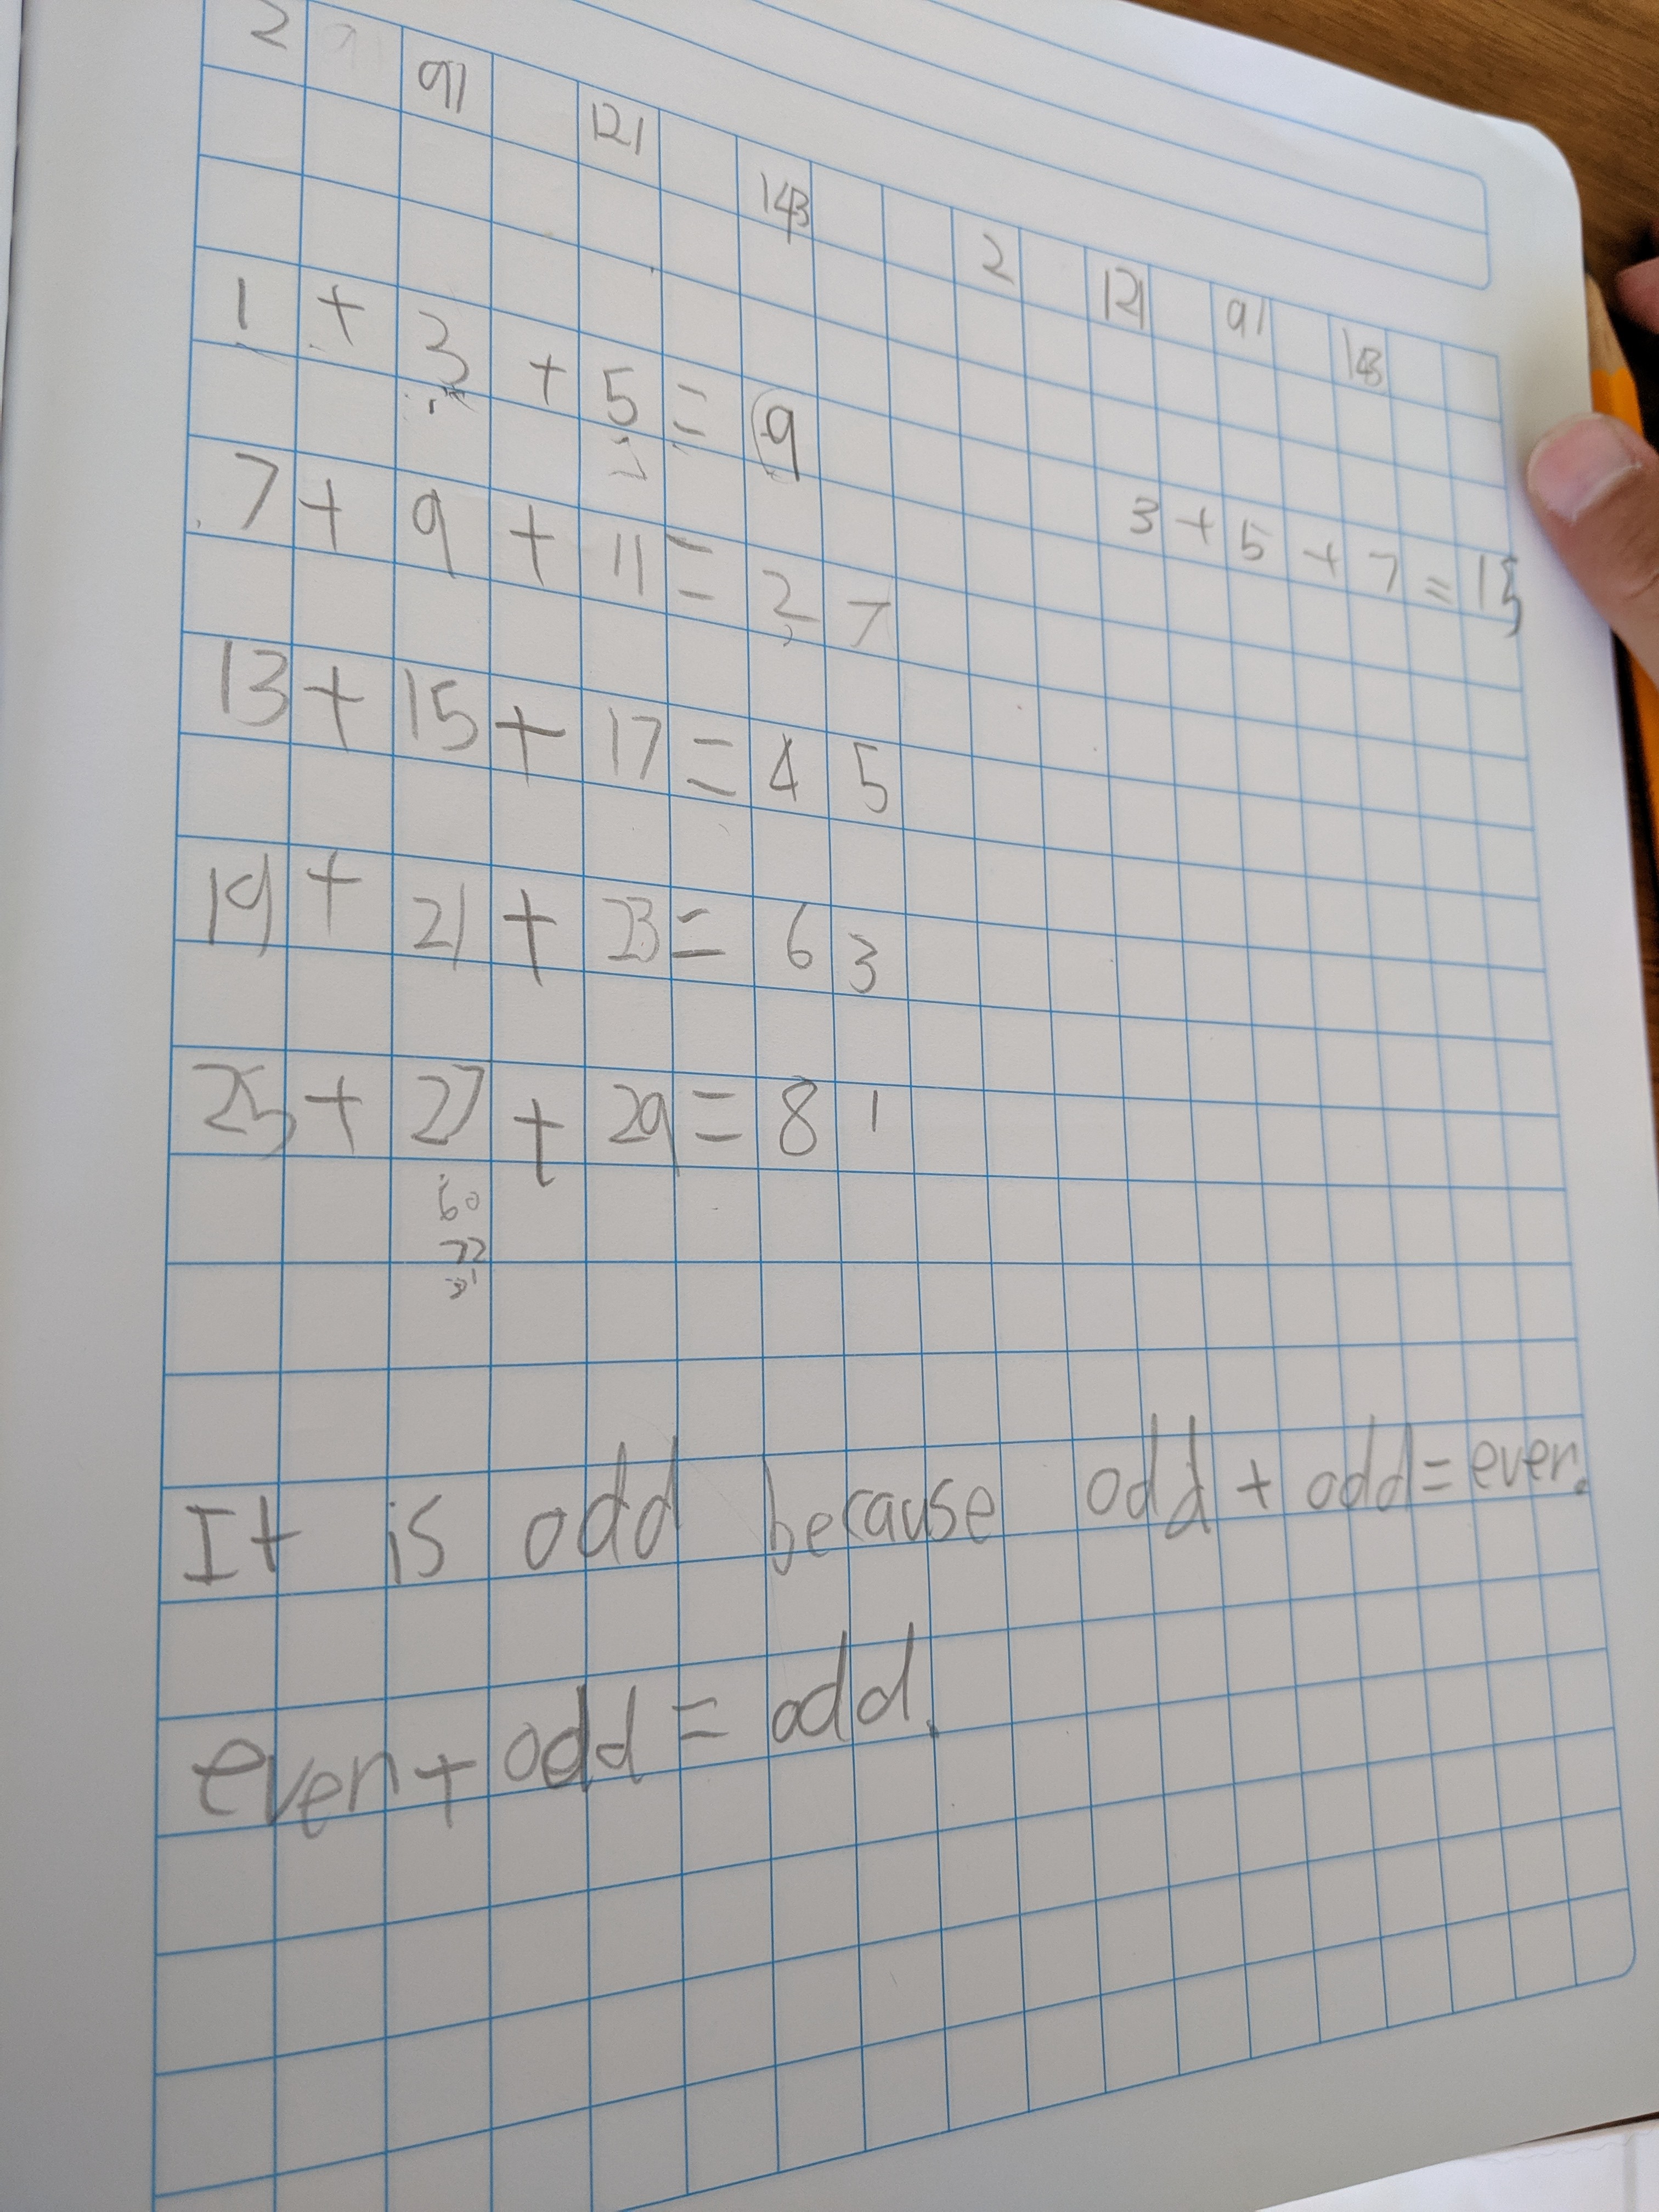 2 91 121 143
2 121 91 143
1 + 3 + 5 = 9
3 + 5 + 7 = 15
7 + 9 + 11 = 27
13 + 15 + 17 = 45
19 + 21 + 23 = 63
25 + 27 + 29 = 81
60
72
81
It is odd because odd + odd = even.
even + odd = odd.